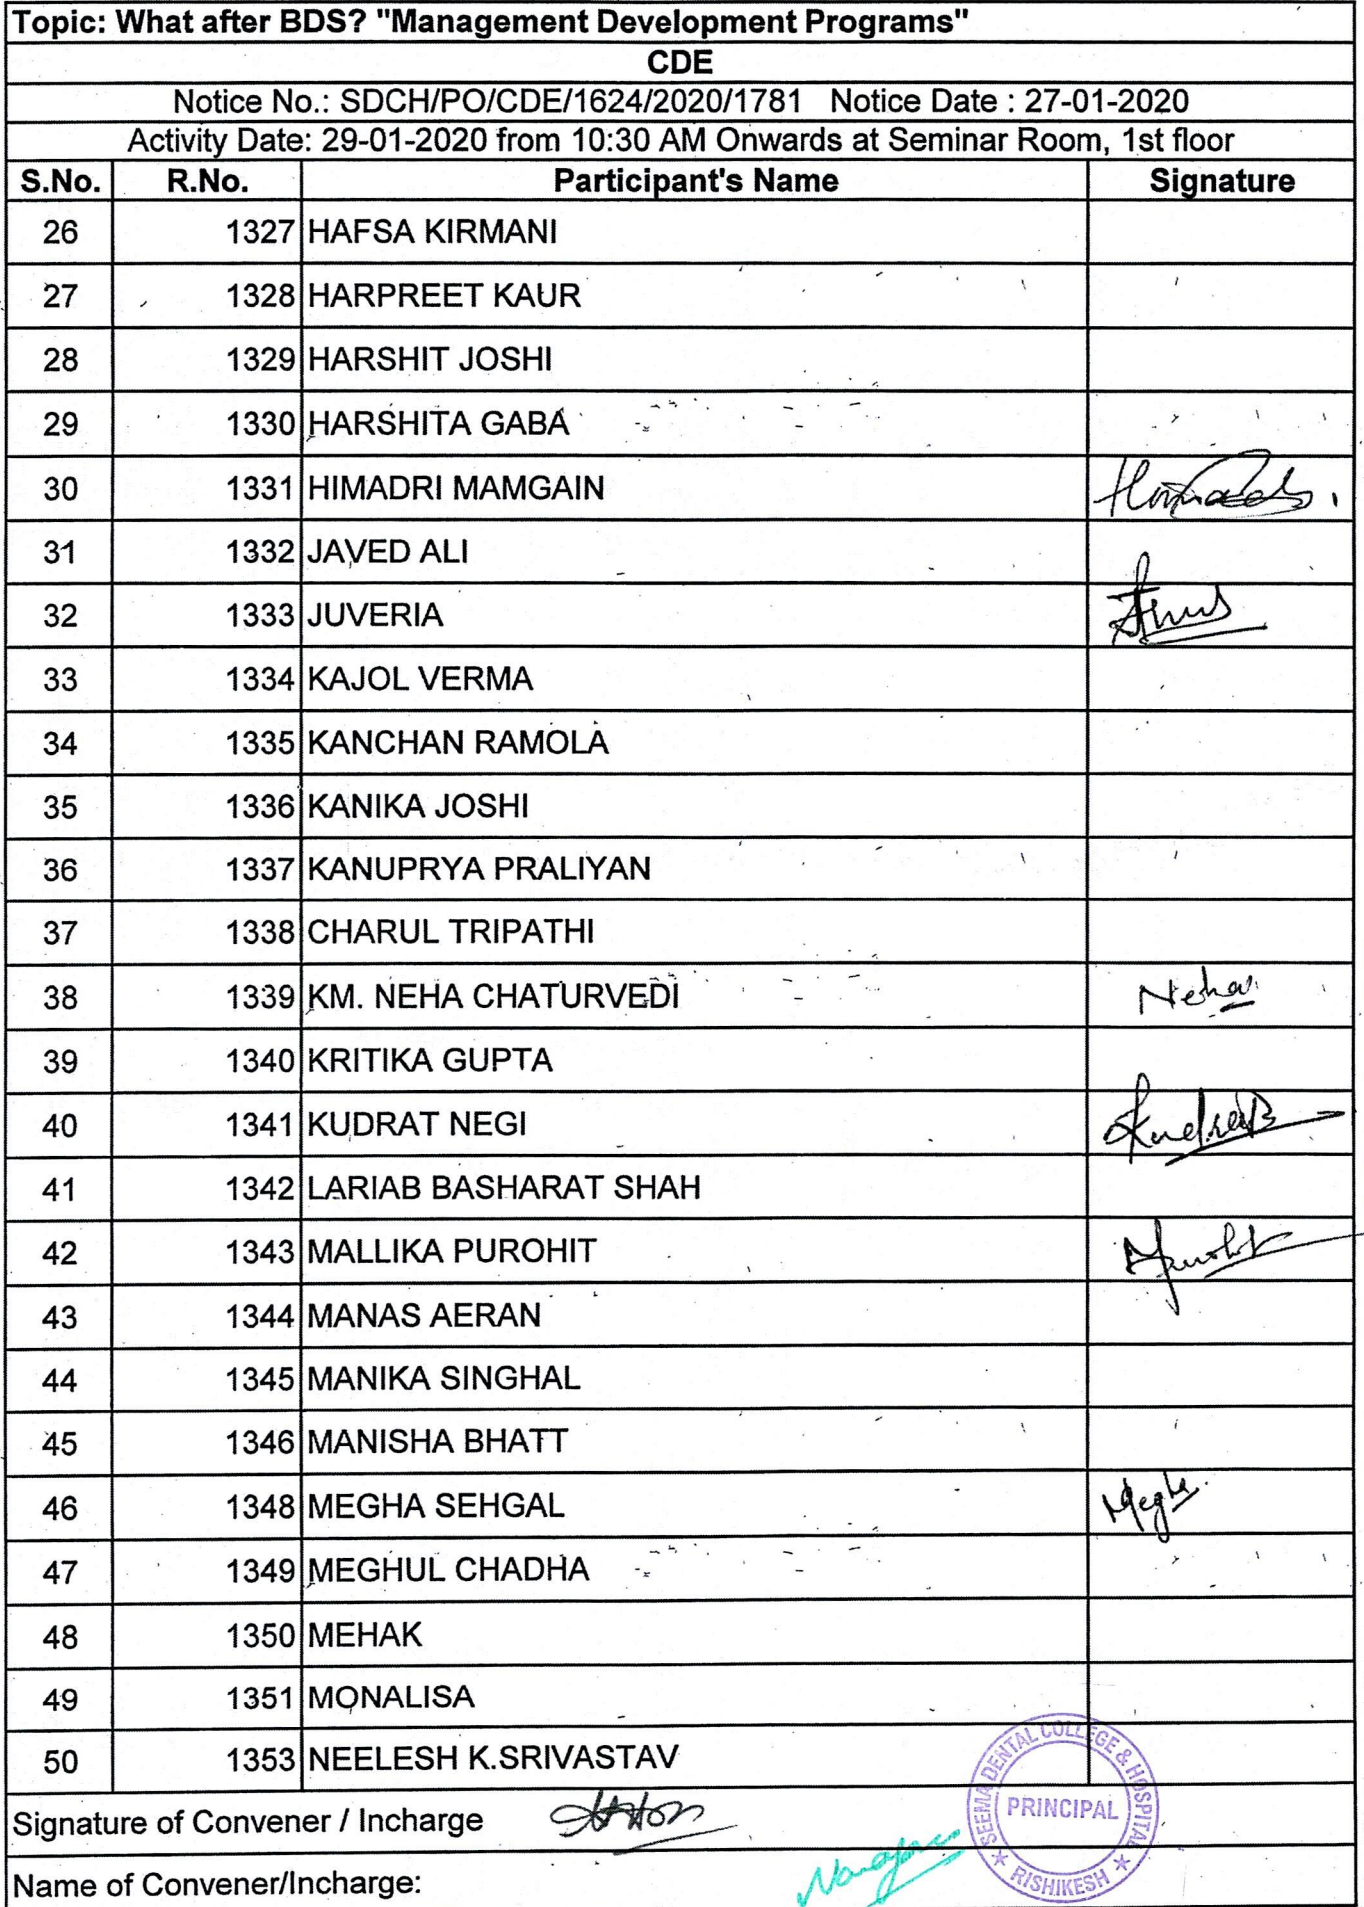 Topic: What after BDS? "Management Development Programs"
CDE
Notice No.: SDCH/PO/CDE/1624/2020/1781 Notice Date : 27-01-2020
Activity Date: 29-01-2020 from 10:30 AM Onwards at Seminar Room, 1st floor
S.No. R.No. Participant's Name Signature
26 1327 HAFSA KIRMANI
27 1328 HARPREET KAUR
28 1329 HARSHIT JOSHI
29 1330 HARSHITA GABA
30 1331 HIMADRI MAMGAIN
31 1332 JAVED ALI
32 1333 JUVERIA
33 1334 KAJOL VERMA
34 1335 KANCHAN RAMOLA
35 1336 KANIKA JOSHI
36 1337 KANUPRYA PRALIYAN
37 1338 CHARUL TRIPATHI
38 1339 KM. NEHA CHATURVEDI Neha
39 1340 KRITIKA GUPTA
40 1341 KUDRAT NEGI Kudrat
41 1342 LARIAB BASHARAT SHAH
42 1343 MALLIKA PUROHIT
43 1344 MANAS AERAN
44 1345 MANIKA SINGHAL
45 1346 MANISHA BHATT
46 1348 MEGHA SEHGAL Megha
47 1349 MEGHUL CHADHA
48 1350 MEHAK
49 1351 MONALISA
50 1353 NEELESH K.SRIVASTAV
Signature of Convener / Incharge
Name of Convener/Incharge:
SEEMA DENTAL COLLEGE & HOSPITAL
PRINCIPAL
RISHIKESH